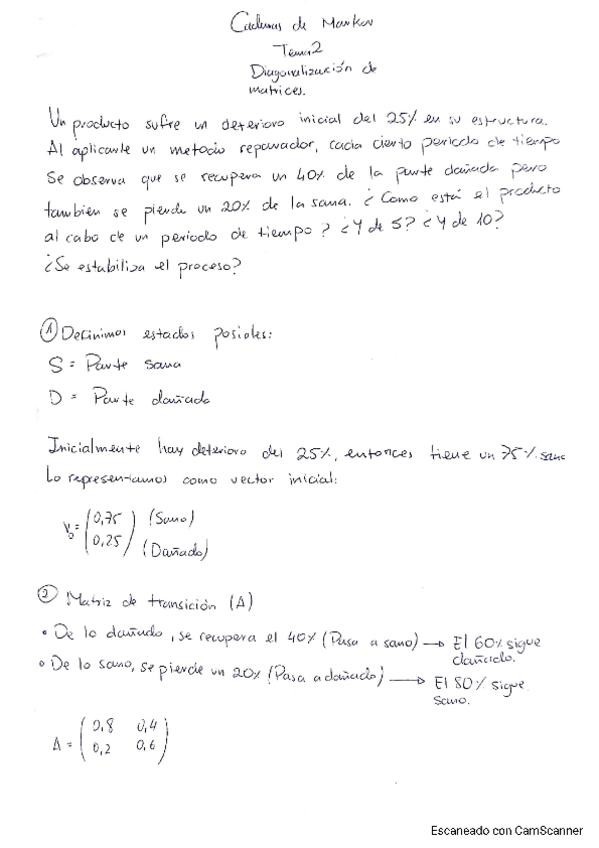 Cadenas de Markov
Tema 2
Diagonalización de
matrices.
Un producto sufre un deterioro inicial del 25% en su estructura.
Al aplicarle un metodo reparador, cada cierto periodo de tiempo
Se observa que se recupera un 40% de la parte dañada pero
tambien se pierde un 20% de la sana. ¿Como está el producto
al cabo de un periodo de tiempo? ¿Y de 5? ¿Y de 10?
¿Se estabiliza el proceso?
① Definimos estados posibles:
S = Parte sana
D = Parte dañada
Inicialmente hay deterioro del 25%, entonces tiene un 75% sano
Lo representamos como vector inicial:
V₀ = (0,75 (Sano)
0,25) (Dañado)
② Matriz de transición (A)
• De lo dañado, se recupera el 40% (Pasa a sano) → El 60% sigue
dañado.
• De lo sano, se pierde un 20% (Pasa a dañado) → El 80% sigue
sano.
A = (0,8 0,4
0,2 0,6)
Escaneado con CamScanner